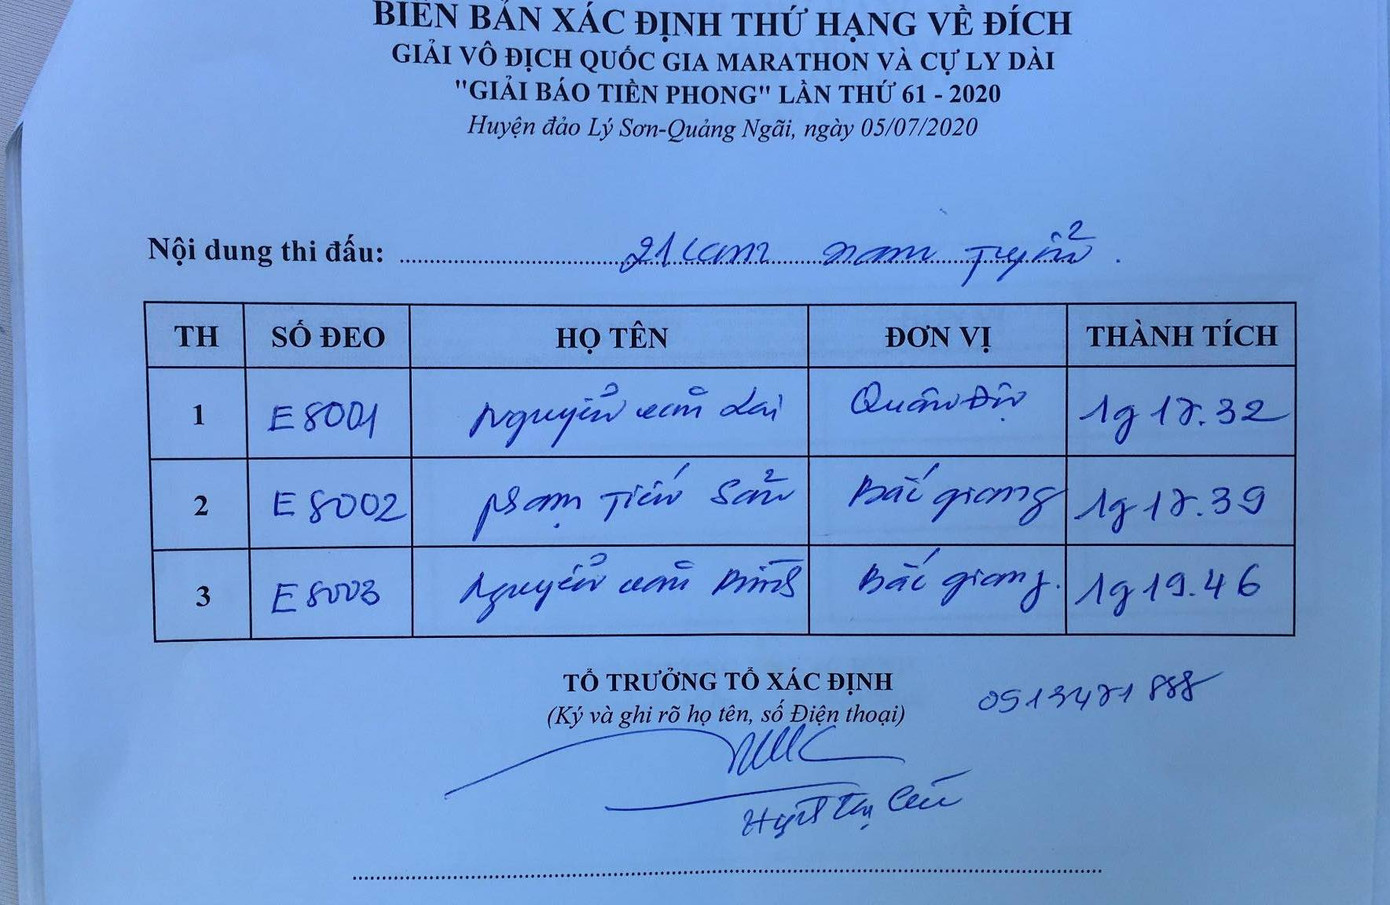 BIÊN BẢN XÁC ĐỊNH THỨ HẠNG VỀ ĐÍCH
GIẢI VÔ ĐỊCH QUỐC GIA MARATHON VÀ CỰ LY DÀI
"GIẢI BÁO TIỀN PHONG" LẦN THỨ 61 - 2020
Huyện đảo Lý Sơn-Quảng Ngãi, ngày 05/07/2020
Nội dung thi đấu: 21km nam Tuyển
TH SỐ ĐEO HỌ TÊN ĐƠN VỊ THÀNH TÍCH
1 E8001 Nguyễn văn Lai Quân Đội 1g17.32
2 E8002 Phạm Tiến Sản Bắc giang 1g17.39
3 E8003 Nguyễn văn Bắc giang. 1g19.46
TỔ TRƯỞNG TỔ XÁC ĐỊNH
(Ký và ghi rõ họ tên, số Điện thoại)